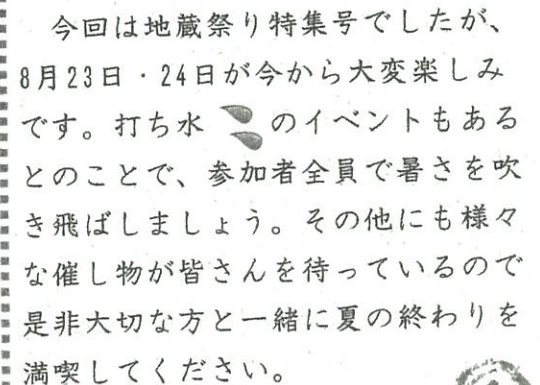 今回は地蔵祭り特集号でしたが、
8月23日・24日が今から大変楽しみ
です。打ち水 のイベントもある
とのことで、参加者全員で暑さを吹
き飛ばしましょう。その他にも様々
な催し物が皆さんを待っているので
是非大切な方と一緒に夏の終わりを
満喫してください。